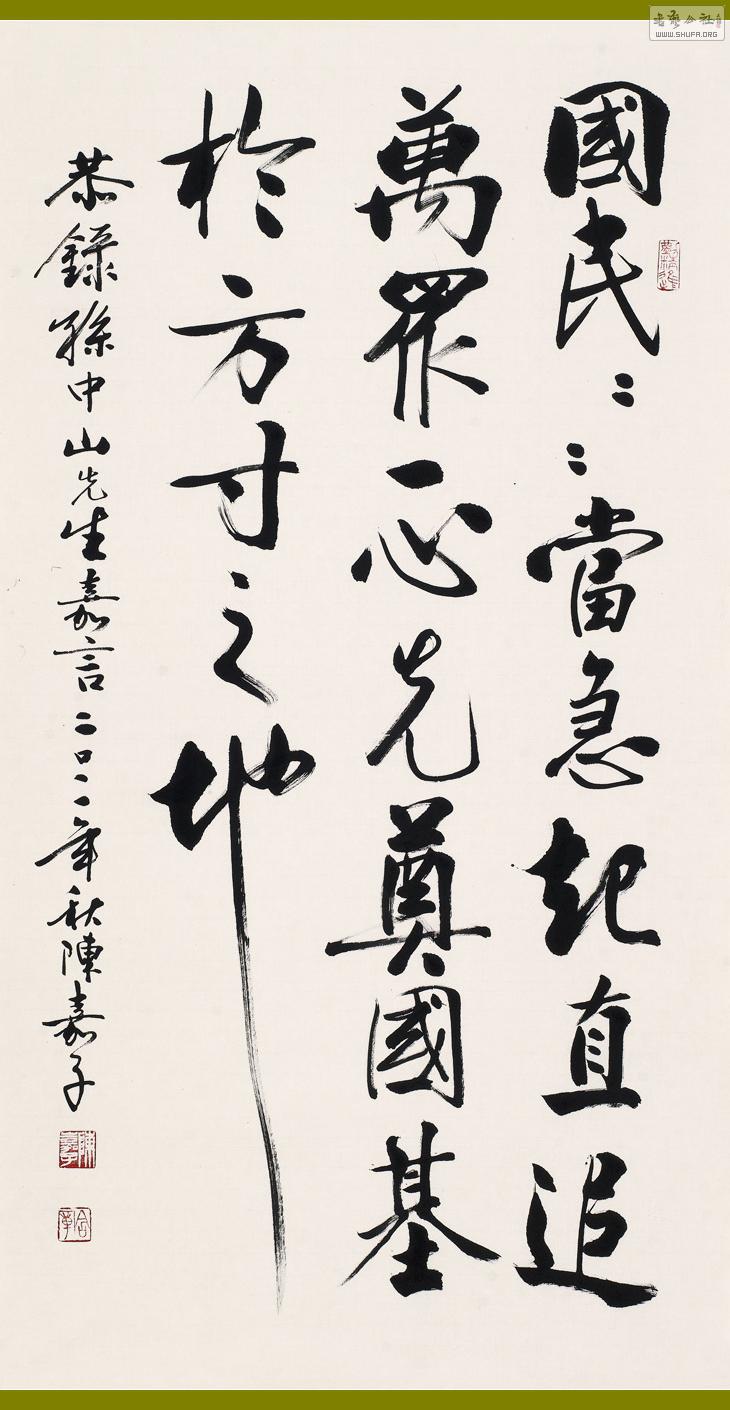 國民〻〻當急起直追
萬眾一心先奠國基
於方寸之地
恭錄孫中山先生嘉言二〇一一年秋陳嘉子
勤精進
陳嘉子
WWW.SHUFA.ORG